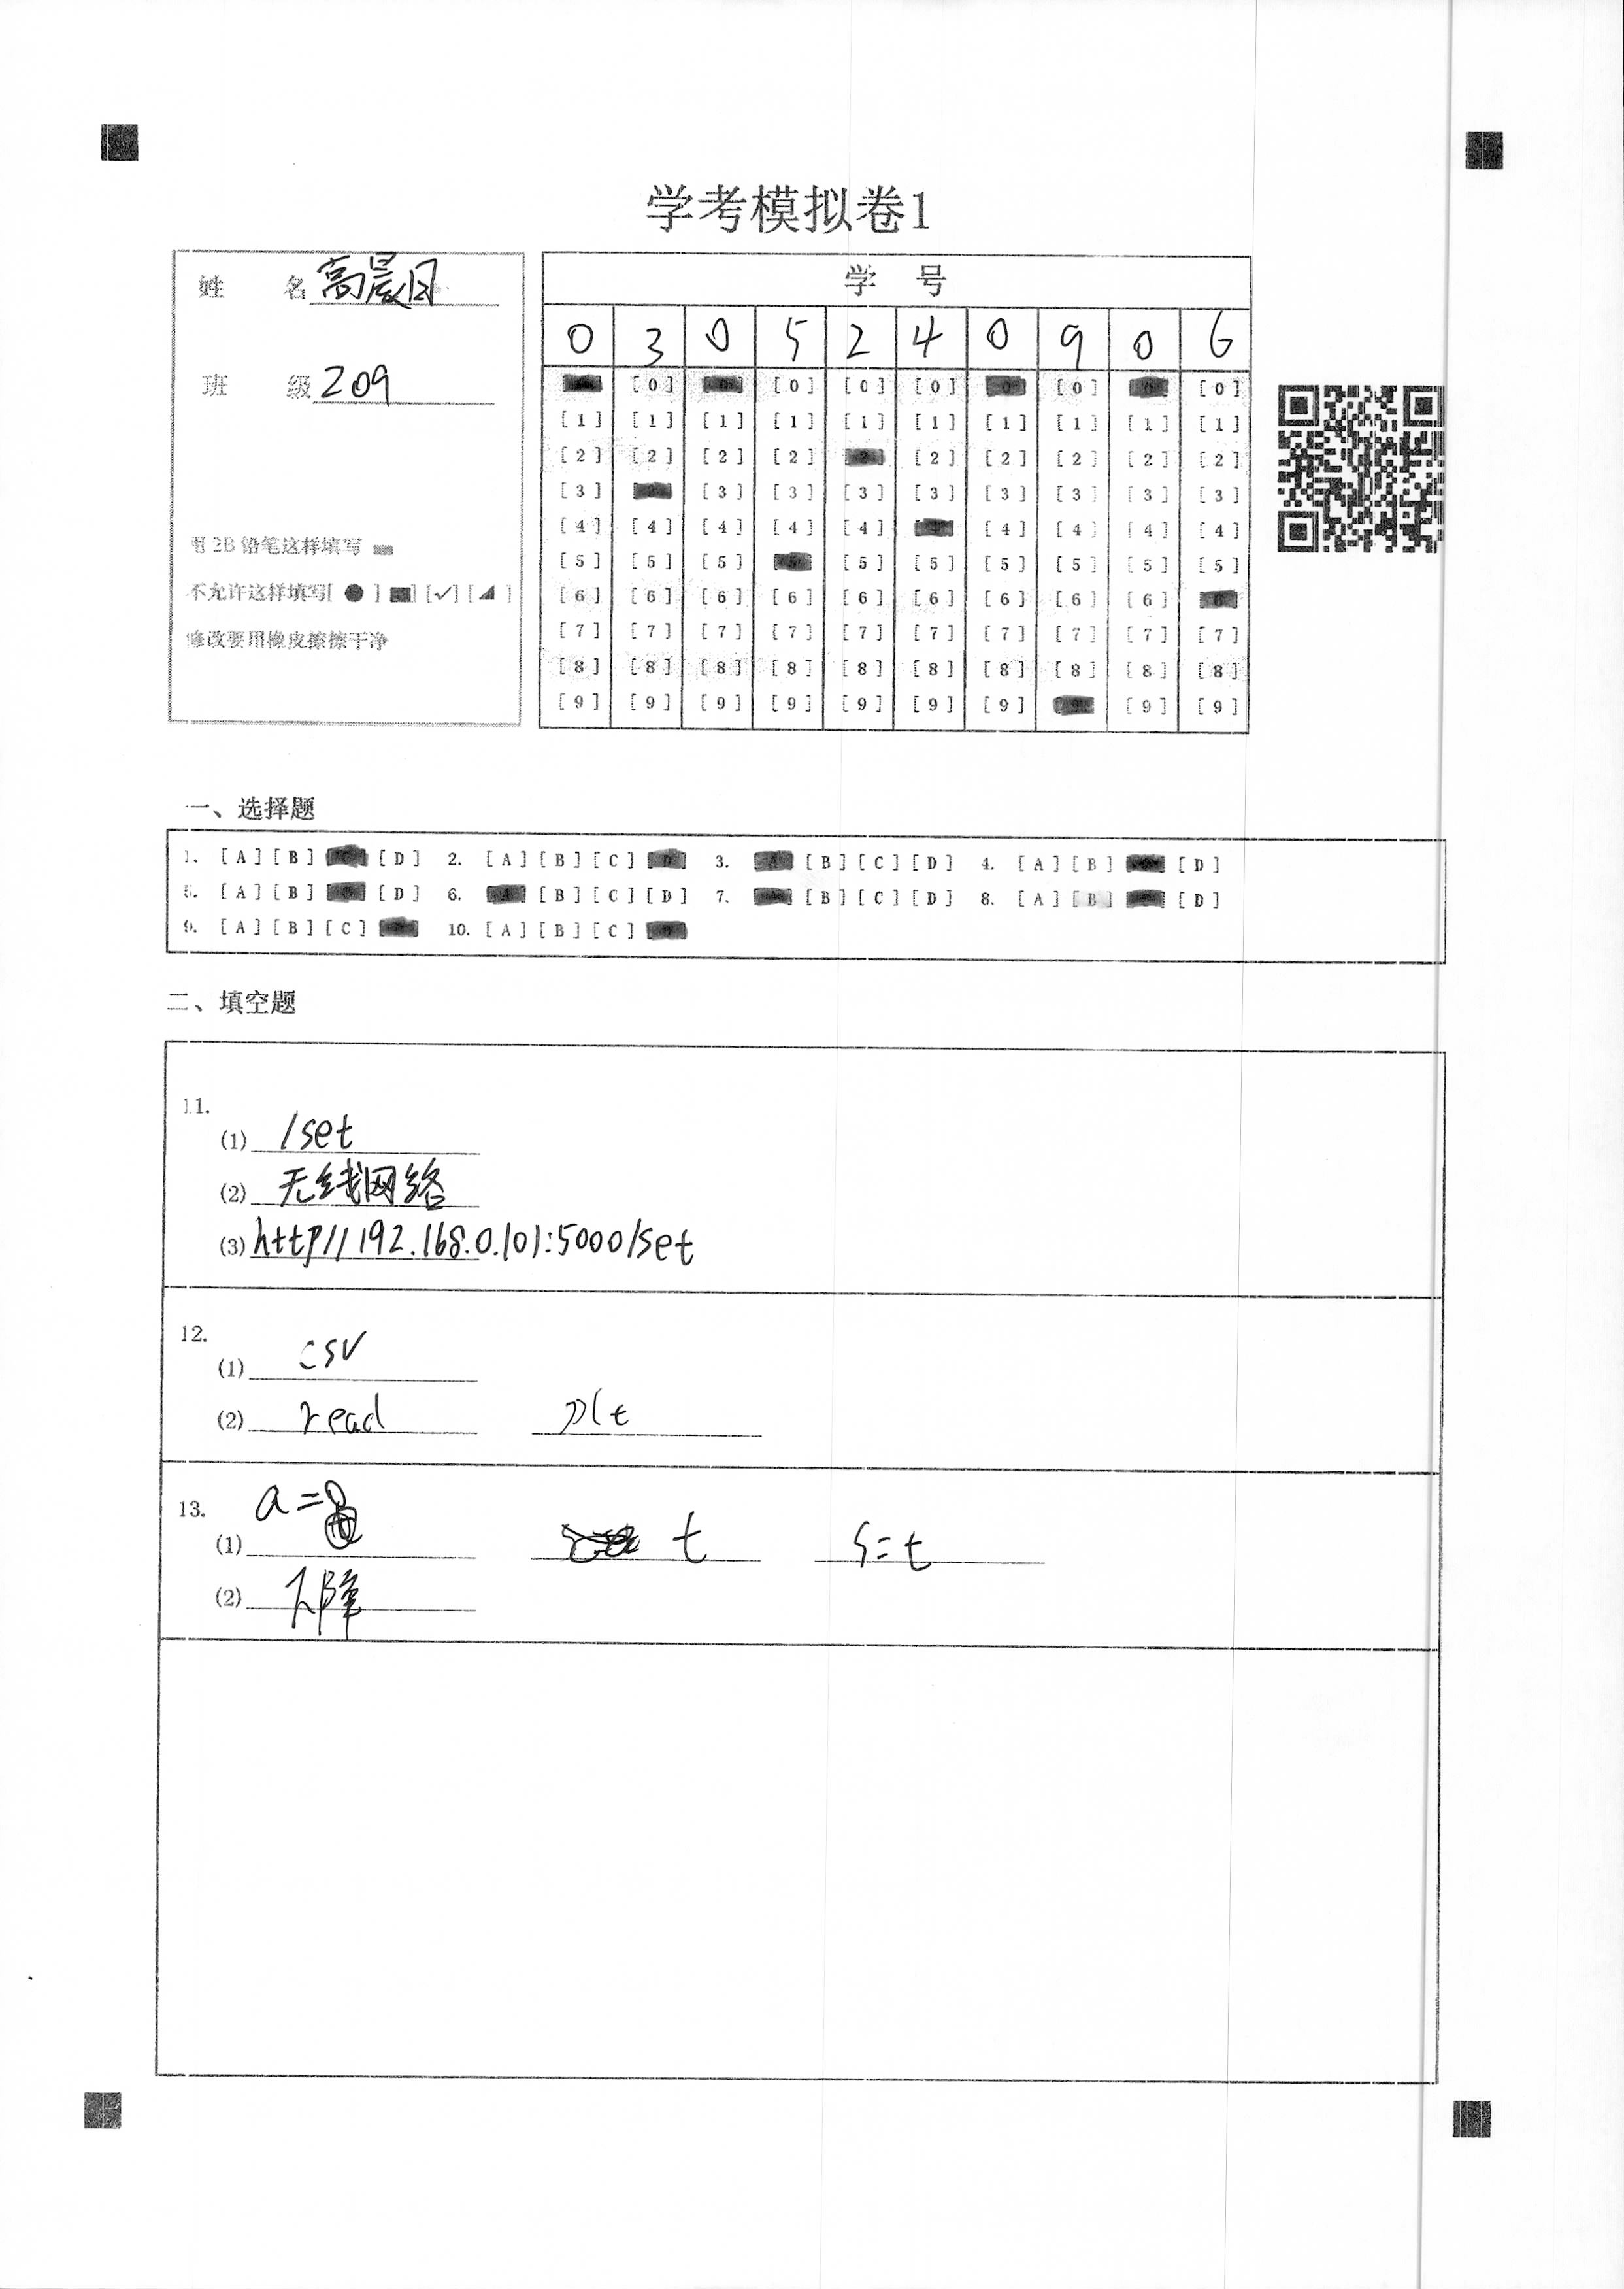 学考模拟卷1
姓 名 高晨月
班 级 209
用 2B 铅笔这样填写
不允许这样填写[ ● ] [✓] [ ]
修改要用橡皮擦擦干净
学 号
0 3 0 5 2 4 0 9 0 6
[0] [0] [0] [0] [0] [0]
[1] [1] [1] [1] [1] [1] [1] [1] [1] [1]
[2] [2] [2] [2] [2] [2] [2] [2] [2]
[3] [3] [3] [3] [3] [3] [3] [3] [3]
[4] [4] [4] [4] [4] [4] [4] [4] [4]
[5] [5] [5] [5] [5] [5] [5] [5] [5]
[6] [6] [6] [6] [6] [6] [6] [6] [6]
[7] [7] [7] [7] [7] [7] [7] [7] [7] [7]
[8] [8] [8] [8] [8] [8] [8] [8] [8] [8]
[9] [9] [9] [9] [9] [9] [9] [9] [9]
一、选择题
1. [A] [B] [D] 2. [A] [B] [C] 3. [B] [C] [D] 4. [A] [B] [D]
5. [A] [B] [D] 6. [B] [C] [D] 7. [B] [C] [D] 8. [A] [B] [D]
9. [A] [B] [C] 10. [A] [B] [C]
二、填空题
11.
(1) /set
(2) 无线网络
(3) http//192.168.0.101:5000/set
12.
(1) csv
(2) read plt
13.
(1) a= t s=t
(2)